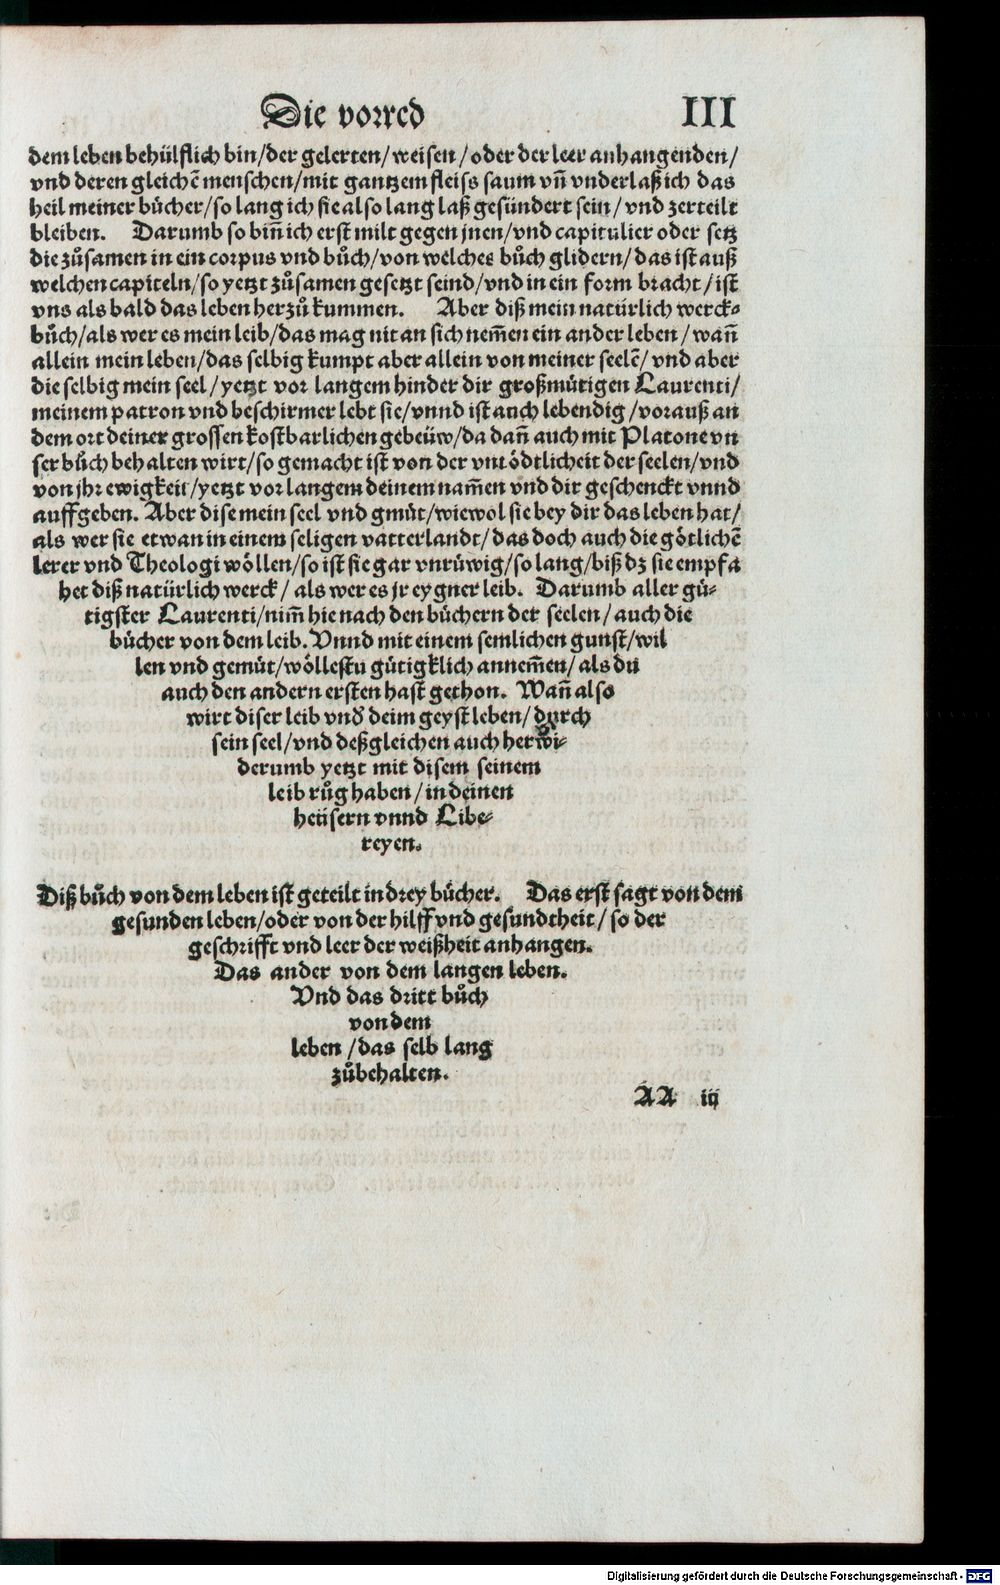 Die vorred III
dem leben behülflich bin/der gelerten/weisen/oder der leer anhangenden/
vnd deren gleichē menschen/mit gantzem fleiss saum vn̄ vnderlaß ich das
heil meiner bücher/so lang ich sie also lang laß gesündert sein/vnd zerteilt
bleiben. Darumb so bin̄ ich erst milt gegen jnen/vnd capitulier oder setz
die zůsamen in ein corpus vnd bůch/von welches bůch glidern/das ist auß
welchen capiteln/so yetzt zůsamen gesetzt seind/vnd in ein form bracht/ist
vns als bald das leben herzů kummen. Aber diß mein natürlich werck-
bůch/als wer es mein leib/das mag nit an sich nem̄en ein ander leben/wan̄
allein mein leben/das selbig kumpt aber allein von meiner seelē/vnd aber
die selbig mein seel/yetzt vor langem hinder dir großmütigen Laurenti/
meinem patron vnd beschirmer lebt sie/vnnd ist auch lebendig/vorauß an
dem ort deiner grossen kostbarlichen gebeüw/da dan̄ auch mit Platone vn
ser bůch behalten wirt/so gemacht ist von der vntödtlicheit der seelen/vnd
von jhr ewigkeit/yetzt vor langem deinem nam̄en vnd dir geschenckt vnnd
auffgeben. Aber dise mein seel vnd gmüt/wiewol sie bey dir das leben hat/
als wer sie etwan in einem seligen vatterlandt/das doch auch die götlichē
lerer vnd Theologi wöllen/so ist sie gar vnrüwig/so lang/biß dz sie empfa
het diß natürlich werck/als wer es jr eygner leib. Darumb aller gü-
tigster Laurenti/nim̄ hie nach den büchern der seelen/auch die
bücher von dem leib. Vnnd mit einem semlichen gunst/wil
len vnd gemüt/wöllestu gütigklich annem̄en/als du
auch den andern ersten hast gethon. Wan̄ also
wirt diser leib vnd deim geyst leben/durch
sein seel/vnd deßgleichen auch herwi-
derumb yetzt mit disem seinem
leib růg haben/in deinen
heüsern vnnd Libe-
reyen.
Diß bůch von dem leben ist geteilt in drey bücher. Das erst sagt von dem
gesunden leben/oder von der hilff vnd gesundtheit/so der
geschrifft vnd leer der weißheit anhangen.
Das ander von dem langen leben.
Vnd das dritt bůch
von dem
leben/das selb lang
zůbehalten.
AA iij
Digitalisierung gefördert durch die Deutsche Forschungsgemeinschaft - DFG